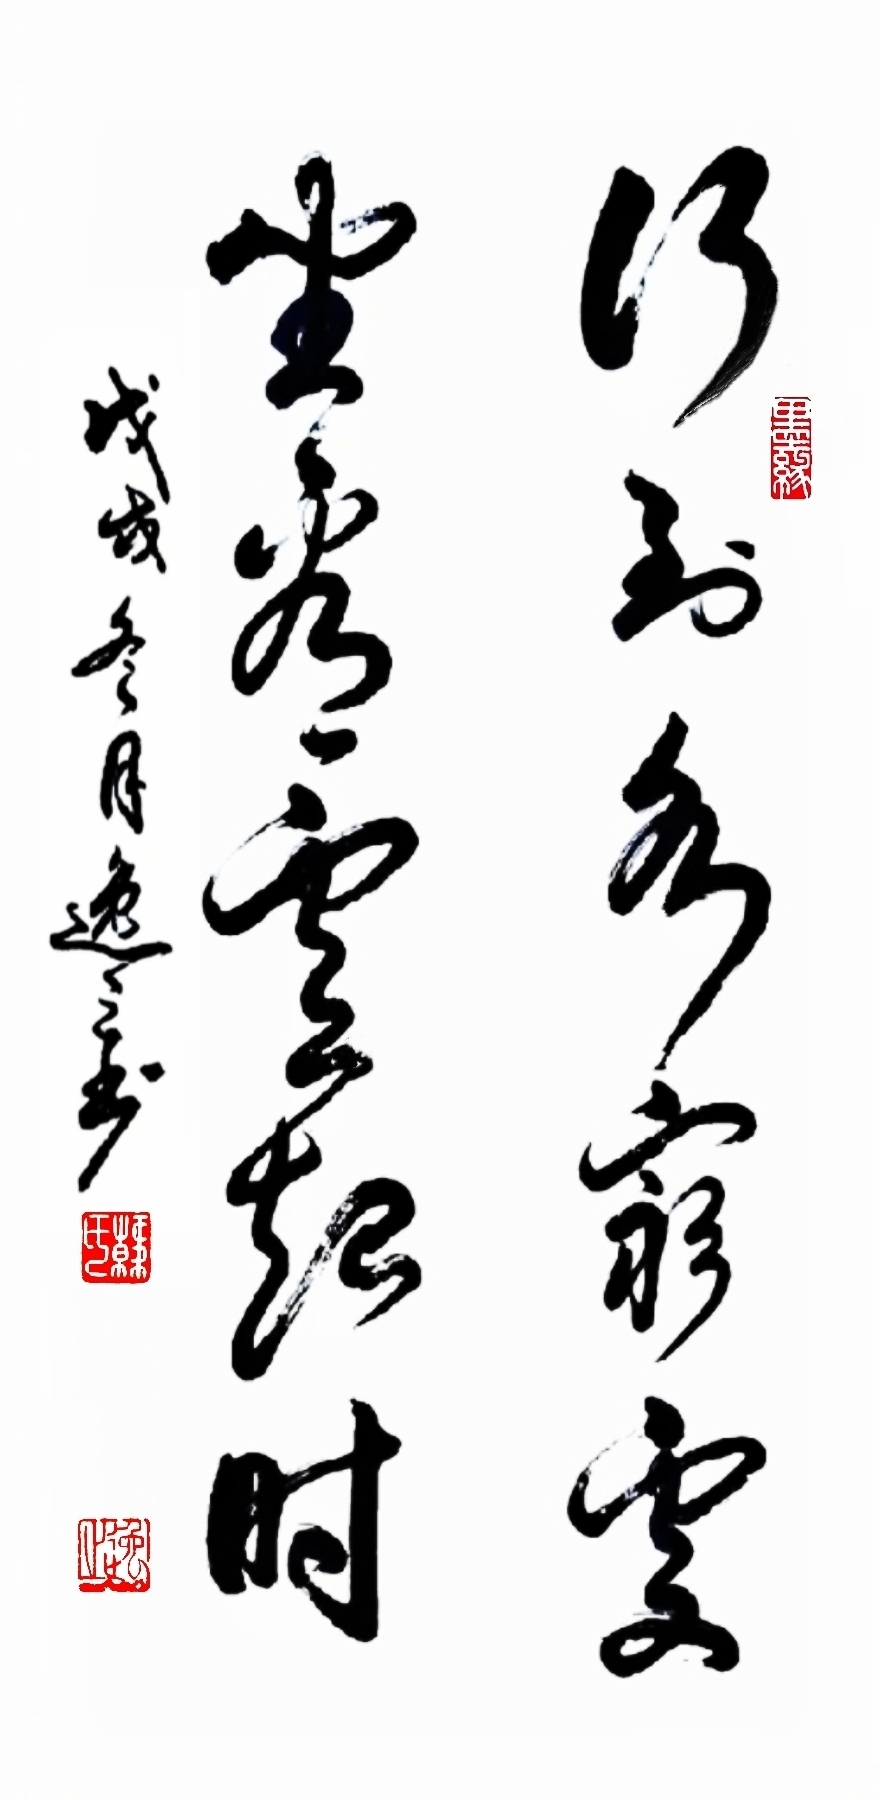 行到水穷处
坐看云起时
戊戌冬月逸之书
墨缘
韩氏